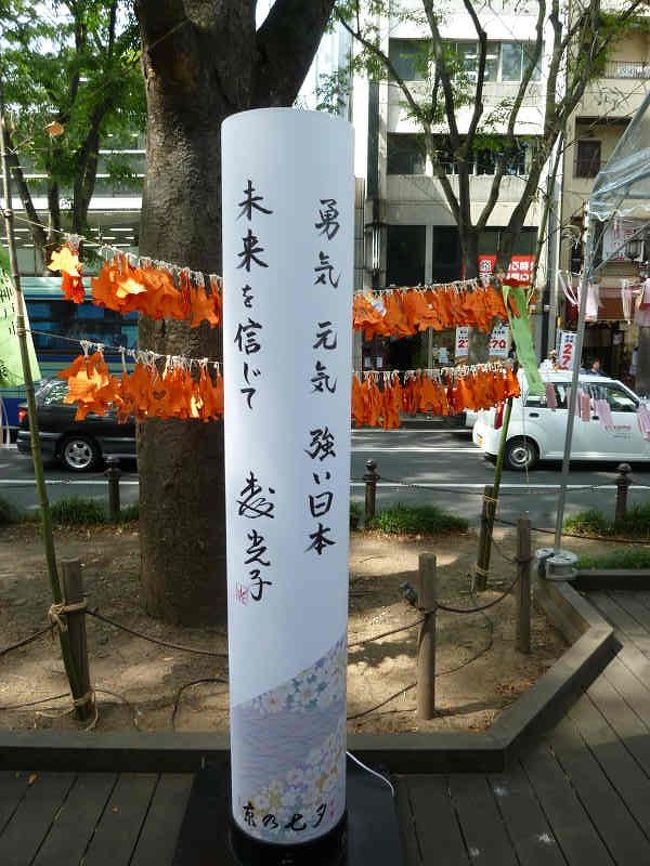 勇気 元気 強い日本
未来を信じて
光子
京の七夕